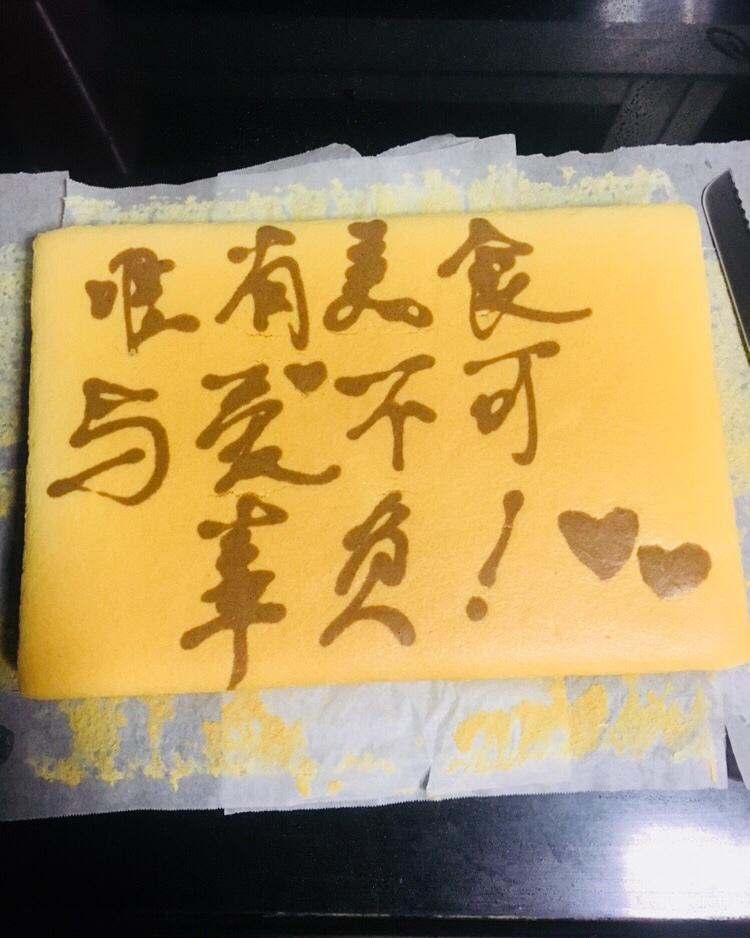 唯有美食
与爱不可
辜负！